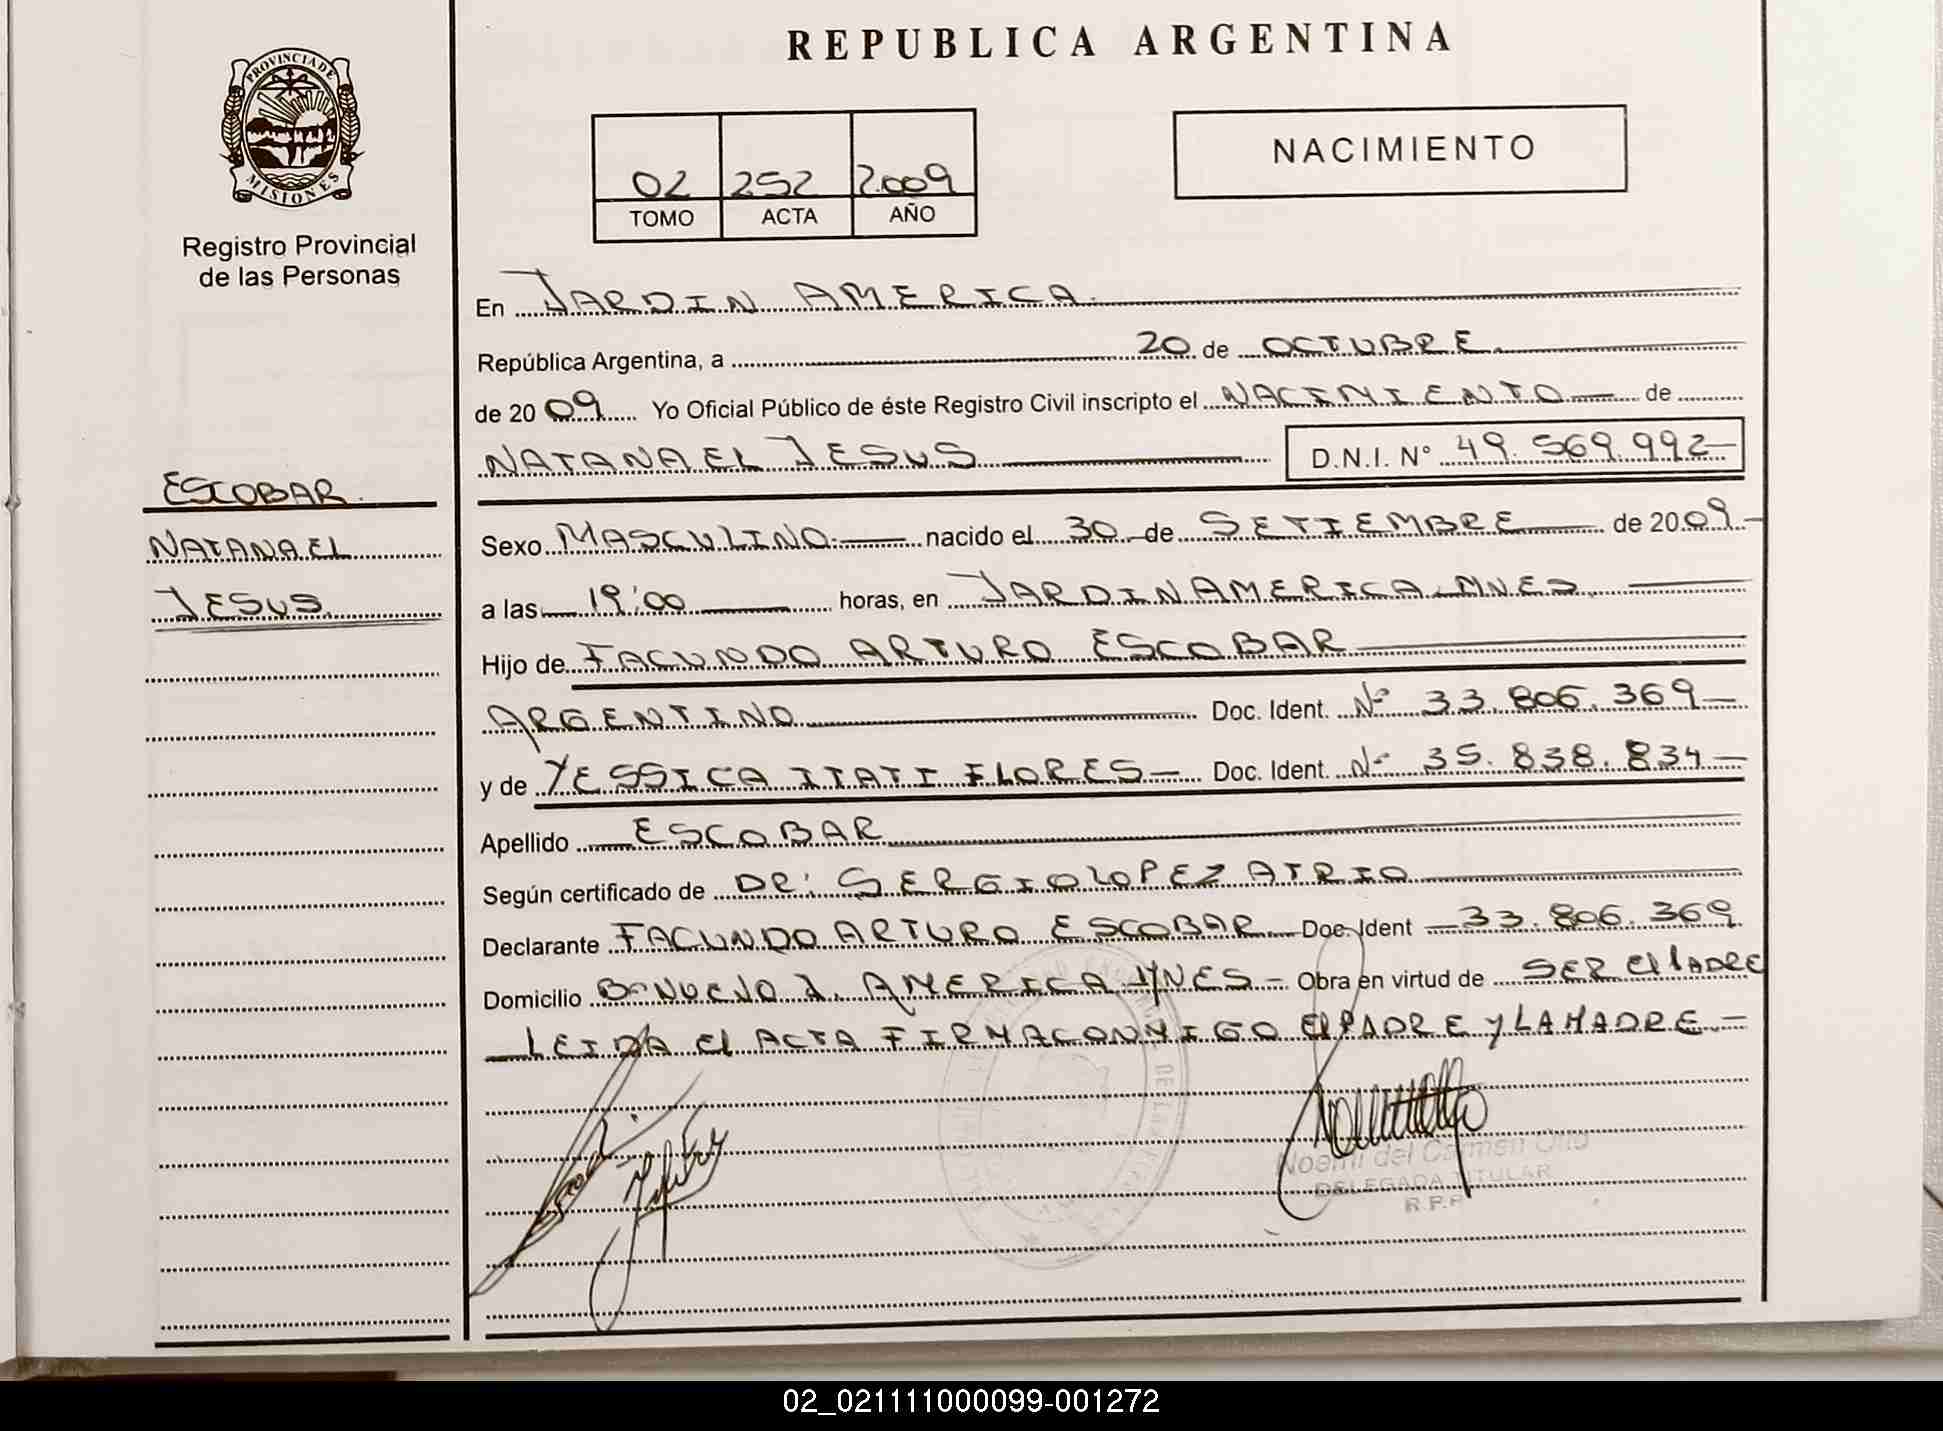 REPUBLICA ARGENTINA
PROVINCIA DE
MISIONES
Registro Provincial
de las Personas
02 252 2009
TOMO ACTA AÑO
NACIMIENTO
En JARDIN AMERICA.
República Argentina, a 20 de OCTUBRE.
de 2009 Yo Oficial Público de éste Registro Civil inscripto el NACIMIENTO de
NATANAEL JESUS D.N.I. N° 49.569.992
ESCOBAR.
NATANAEL
JESUS.
Sexo MASCULINO nacido el 30 de SETIEMBRE de 2009.
a las 19:00 horas, en JARDIN AMERICA. MNES.
Hijo de FACUNDO ARTURO ESCOBAR
ARGENTINO Doc. Ident. N° 33.806.369
y de YESSICA ITATI FLORES Doc. Ident. N° 35.838.834
Apellido ESCOBAR
Según certificado de DR: SERGIO LOPEZ ATRIO
Declarante FACUNDO ARTURO ESCOBAR Doc. Ident 33.806.369
Domicilio B° NUEVO J. AMERICA MNES Obra en virtud de SER El PADRE
LEIDA El ACTA FIRMA CONMIGO El PADRE y LA MADRE.
Noemi del Carmen
DELEGADA TITULAR
R.P.P
02_021111000099-001272